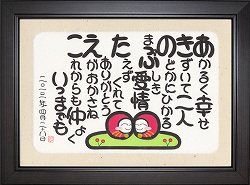 あかるく幸せ
きずいて二人
のどかにひかる
まぶしき
愛情
たえずくれて
ありがとう
えがおかさね
これからも仲よく
いつまでも